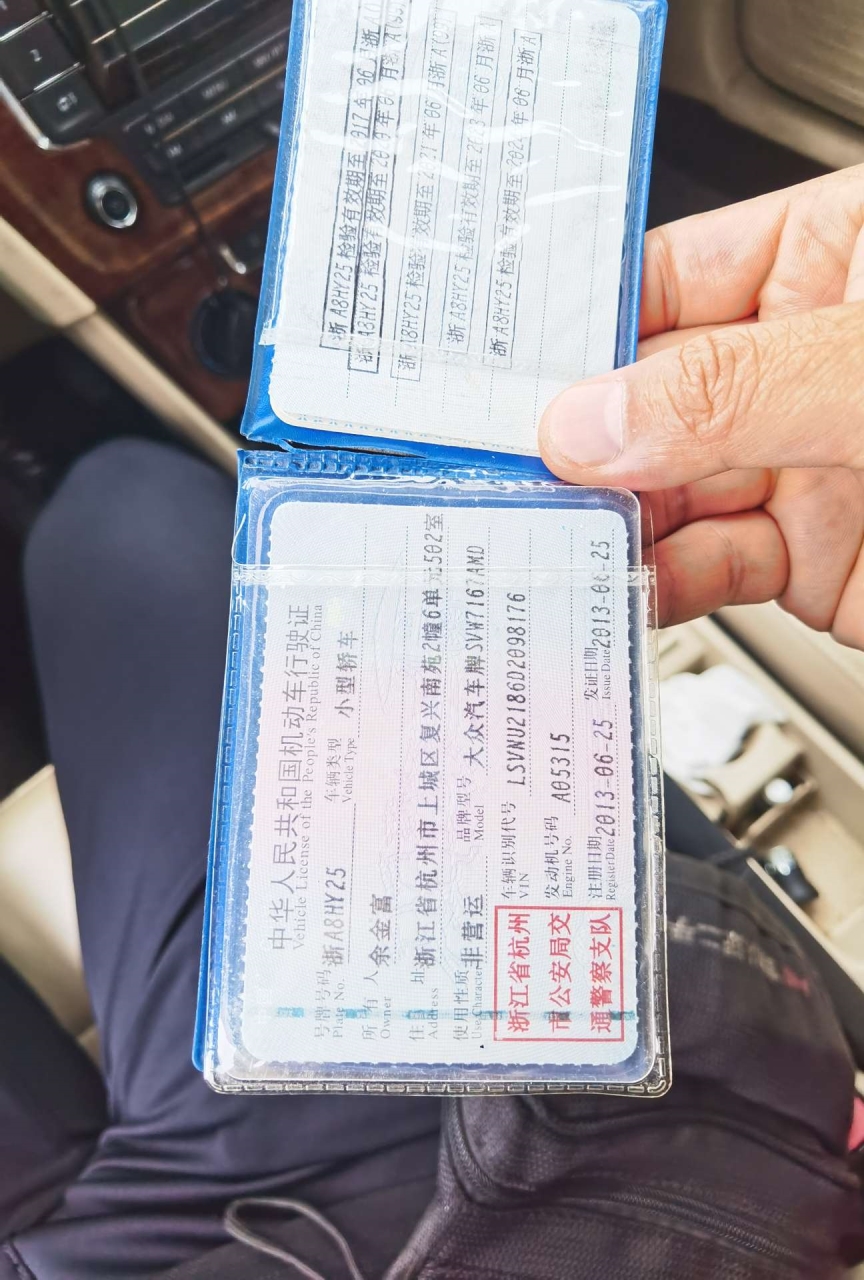 浙A8HY25 检验有效期至 2017年 06月浙A(03)
浙A8HY25 检验有效期至 06月
浙A8HY25 检验有效期至 2021年 06月浙A
浙A8HY25 检验有效期至 2023年 06月浙A
浙A8HY25 检验有效期至 202 年 06月浙A
中华人民共和国机动车行驶证
Vehicle License of the People's Republic of China
号牌号码 浙A8HY25 车辆类型 小型轿车
Plate No. Vehicle Type
所有人 余金富
Owner
住 址 浙江省杭州市上城区复兴南苑2幢6单元502室
Address
使用性质 非营运 品牌型号 大众汽车牌SVW7167AMD
Use Character Model
浙江省杭州
市公安局交
通警察支队
车辆识别代号 LSVNU2186D2098176
VIN
发动机号码 A05315
Engine No.
注册日期 2013-06-25 发证日期 2013-06-25
Register Date Issue Date